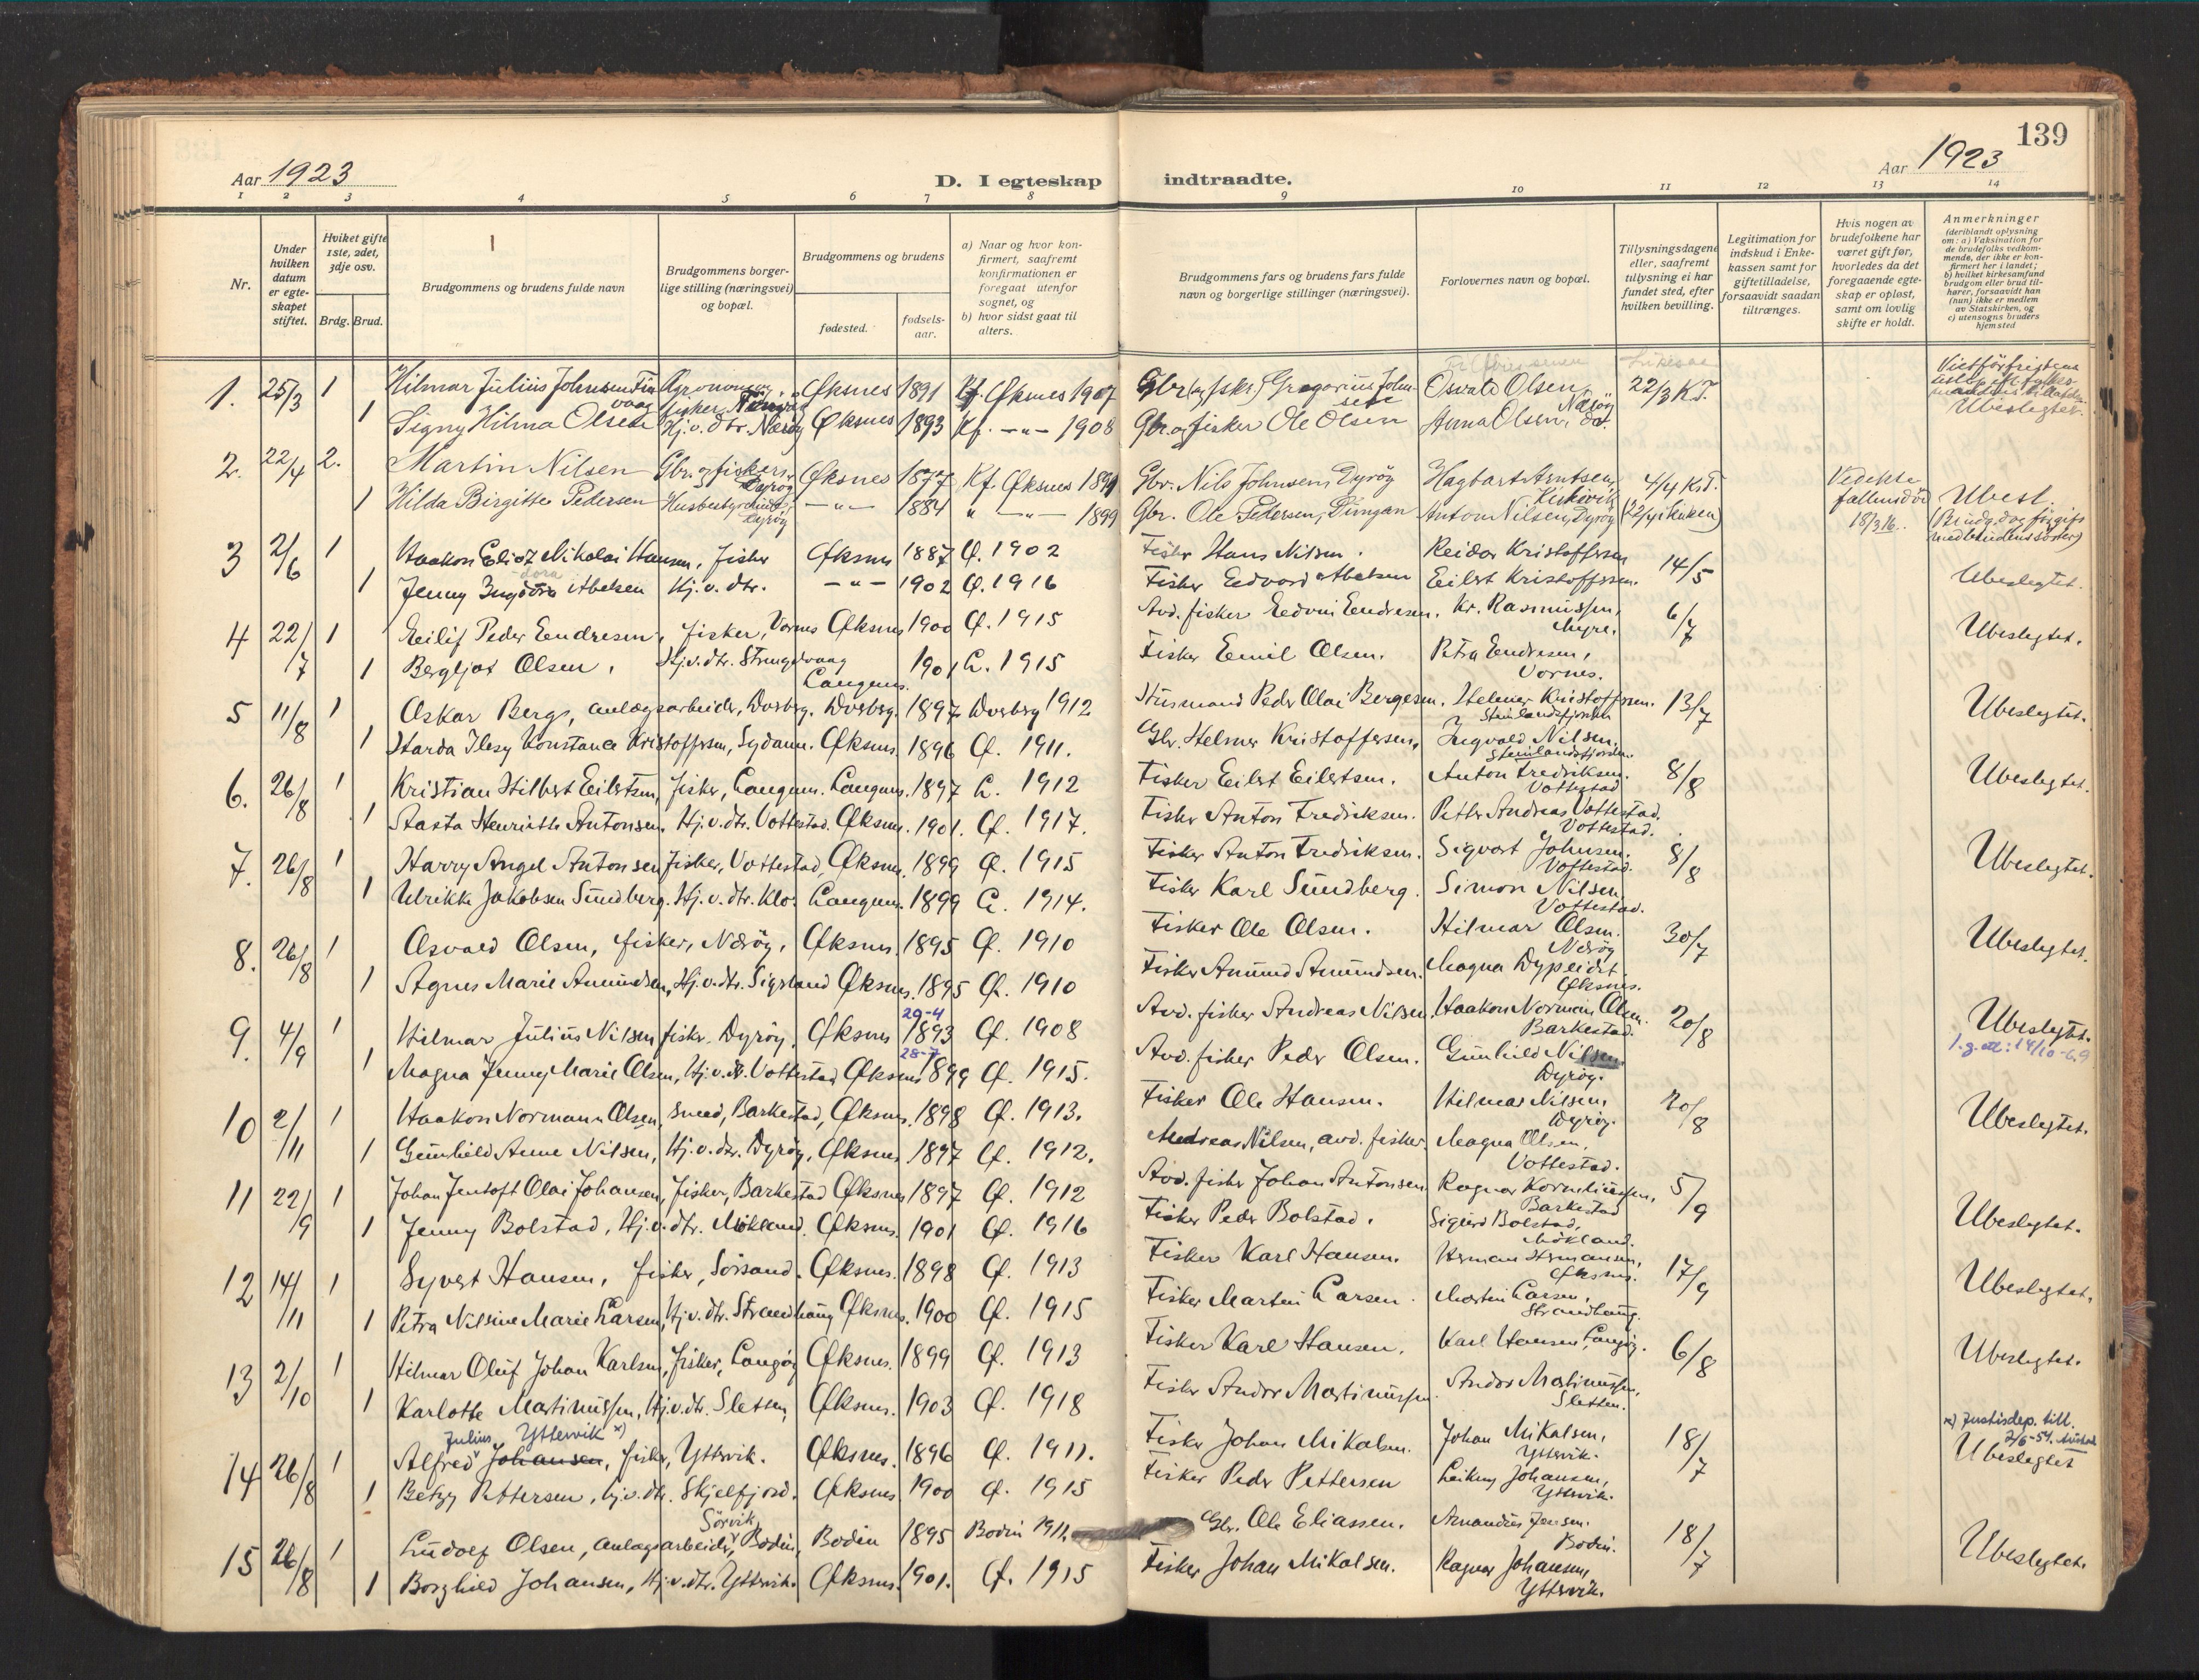 139
Aar 1923
D. I egteskap indtraadte.
Aar 1923
1 2 3 4 5 6 7 8 9 10 11 12 13 14
Nr.
Under hvilken datum er egteskapet stiftet.
Hviket gifte 1ste, 2det, 3dje osv.
Brdg. Brud.
Brudgommens og brudens fulde navn
Brudgommens borgerlige stilling (næringsvei) og bopæl.
Brudgommens og brudens
fødested.
fødselsaar.
a) Naar og hvor konfirmert, saafremt konfirmationen er foregaat utenfor sognet, og
b) hvor sidst gaat til alters.
Brudgommens fars og brudens fars fulde navn og borgerlige stillinger (næringsvei).
Forlovernes navn og bopæl.
Tillysningsdagene eller, saafremt tillysning ei har fundet sted, efter hvilken bevilling.
Legitimation for indskud i Enkekassen samt for giftetilladelse, forsaavidt saadan tiltrænges.
Hvis nogen av brudefolkene har været gift før, hvorledes da det foregaaende egteskap er opløst, samt om lovlig skifte er holdt.
Anmerkninger (deriblandt oplysning om: a) Vaksination for de brudefolks vedkommende, der ikke er konfirmert her i landet; b) hvilket kirkesamfund brudgom eller brud tilhører, forsaavidt han (hun) ikke er medlem av Statskirken, og c) utensogns bruders hjemsted
1. 25/3 1 Hilmar Julius Johnsen Øksnes 1891 Kf. Øksnes 1907 Gbr. Gregorius Johnsen Osvald Olsen, Nærøy 22/3 K.T.
1 Signy Hilma Olsen Hj.v. dtr. Nærøy Øksnes 1893 Kf. -"- 1908 Gbr. og fisker Ole Olsen Anna Olsen, do. Ubeslegtet.
2. 22/4 2. Martin Nilsen Gbr. og fisker, Dyrøy Øksnes 1877 Kf. Øksnes 1891 Gbr. Nils Johnsen, Dyrøy Hagbart Arntsen, 4/4 K.T. Vedekte fallensdød 18/3 16. Ubesl.
1 Hilda Birgitte Pedersen Dyrøy -"- 1884 " -"- 1899 Gbr. Ole Pedersen, Anton Nilsen, Dyrøy
3 2/6 1 Haakon Nikolai Hansen, fisker Øksnes 1887 Ø. 1902 Fisker Hans Nilsen. Reidar Kristoffersen 14/5
1 Jenny Ingdora Abelsen Hj.v. dtr. -"- 1902 Ø. 1916 Fisker Edvard Abelsen Eilert Kristoffersen. Ubeslegtet.
4 22/7 1 Eilif Peder Endresen, fisker, Vornes Øksnes 1900 Ø. 1915 Avd. fisker Edvin Endresen. Kr. Rasmussen, Myre. 6/7 Ubeslegtet.
1 Bergljot Olsen, Hj.v. dtr. Strengelvaag Langenes. 1901 L. 1915 Fisker Emil Olsen. Petra Endresen, Vornes.
5 11/8 1 Oskar Berge, anlægsarbeider, Dverberg. Dverberg. 1897 Dverberg 1912 Husmand Peder Olai Bergesen. Helmer Kristoffersen. Steinlandsfjorden 13/7 Ubeslegtet.
1 Harda Konstance Kristoffersen, Øksnes. 1896 Ø. 1911. Gbr. Helmer Kristoffersen. Ingvald Nilsen, Steinlandsfjorden.
6. 26/8 1 Kristian Hilbert Eilertsen, fisker, Langenes. Langenes. 1897 L. 1912 Fisker Eilert Eilertsen. Anton Fredriksen. Vottestad 8/8 Ubeslegtet.
1 Aasta Henriette Antonsen, Hj.v. dtr. Vottestad. Øksnes. 1901. Ø. 1917. Fisker Anton Fredriksen. Petter Andreas Vottestad. Vottestad.
7. 26/8 1 Harry Angel Antonsen fisker, Vottestad, Øksnes. 1899 Ø. 1915 Fisker Anton Fredriksen. Sigvart Johnsen. Vottestad. 8/8 Ubeslegtet.
1 Ulrikke Jakobsen Sundberg. Hj.v. dtr. Klo. Langenes. 1899 L. 1914. Fisker Karl Sundberg. Simon Nilsen, Vottestad.
8. 26/8 1 Osvald Olsen, fisker, Nærøy, Øksnes. 1895 Ø. 1910 Fisker Ole Olsen. Hilmar Olsen. Nærøy 30/7 Ubeslegtet.
1 Agnes Marie Amundsen, Hj.v. dtr. Sigerland Øksnes. 1895 Ø. 1910 Fisker Amund Amundsen. Magna Dypeidet. Øksnes.
9. 4/9 1 Hilmar Julius Nilsen fisker. Dyrøy. Øksnes 29-4 1893 Ø. 1908 Avd. fisker Andreas Nilsen. Haakon Norman Olsen. Barkestad. 20/8 Ubeslegtet. 14/10-69
1 Magna Jenny Marie Olsen, Hj.v. dt. Vottestad Øksnes 28-7 1899 Ø. 1915. Avd. fisker Peder Olsen. Gunhild Nilsen. Dyrøy.
10 2/11 1 Haakon Normann Olsen, smed, Barkestad, Øksnes. 1898 Ø. 1913. Fisker Ole Hansen. Hilmar Nilsen, Dyrøy. 20/8 Ubeslegtet.
1 Gunhild Anne Nilsen, Hj.v. dtr. Dyrøy, Øksnes 1897 Ø. 1912. Andreas Nilsen, avd. fisker. Magna Olsen, Vottestad.
11 22/9 1 Johan Jentoft Olai Johansen, fisker, Barkestad Øksnes 1897 Ø. 1912 Avd. fisker Johan Antonsen Ragnar Korneliussen, Barkestad 5/9
1 Jenny Bolstad, Hj.v. dtr. Mökland. Øksnes. 1901 Ø. 1916 Fisker Peder Bolstad. Sigurd Bolstad, Mökland. Ubeslegtet.
12 14/11 1 Syvert Hansen, fisker, Sörsand. Øksnes. 1898 Ø. 1913 Fisker Karl Hansen. Herman Hermansen, Øksnes. 17/9 Ubeslegtet.
1 Petra Nilsine Marie Larsen, Hj.v. dtr. Strandhaug Øksnes. 1900 Ø. 1915 Fisker Martin Larsen. Martin Larsen, Strandhaug.
13 2/10 1 Hilmar Oluf Johan Karlsen, fisker, Langøy Øksnes. 1899 Ø. 1913 Fisker Karl Hansen. Karl Hansen, Langøy. 6/8 Ubeslegtet.
1 Karlotte Martinussen, Hj.v. dtr. Sletten, Øksnes. 1903 Ø. 1918 Fisker Andor Martinussen Andor Martinussen, Sletten.
Julius Yttervik x) x) Justisdep. till. 2/6-54.
14 26/8 1 Alfred Johansen, fisker, Yttervik. Øksnes. 1896 Ø. 1911. Fisker Johan Mikalsen. Johan Mikalsen, Yttervik. 18/7 Ubeslegtet
1 Betzy Pettersen, hj.v. dtr. Skjelfjord. Øksnes. 1900 Ø. 1915 Fisker Peder Pettersen Johansen, Yttervik.
15 26/8 1 Ludolf Olsen, anlægsarbeider, Sörvik Bodin, Bodin 1895 Bodin 1911. Gbr. Ole Eliassen. Amandus Jensen. Bodin. 18/7 Ubeslegtet.
1 Borghild Johansen, Hj.v. dtr. Yttervik. Øksnes. 1901. Ø. 1915 Fisker Johan Mikalsen. Ragnar Johansen, Yttervik.